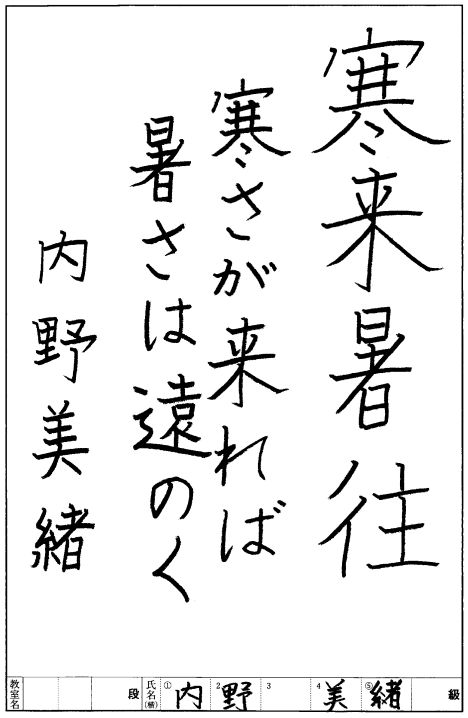 寒来暑往
寒さが来れば
暑さは遠のく
内野美緒
教室名 段 氏名(楷) ①内 2野 3 4美 ⑤緒 級